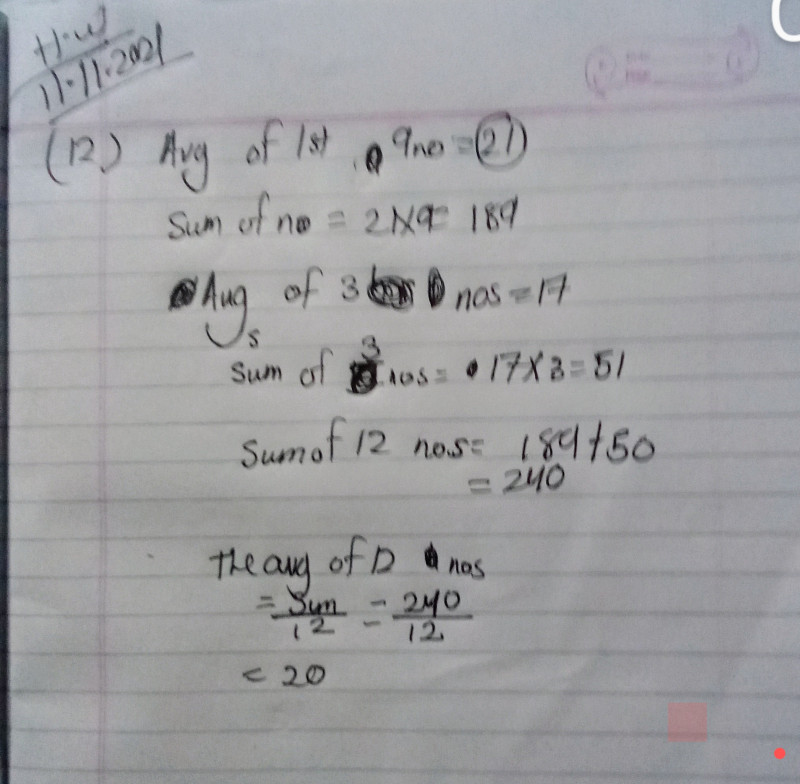 H.W
11.11.2021
(12.) Avg of 1st 9no = 21
Sum of no = 21×9= 189
Avg of 3 nos = 17
s
Sum of 3 nos = 17×3=51
Sum of 12 nos= 189+50
= 240
The avg of 12 nos
= Sum/12 = 240/12
= 20